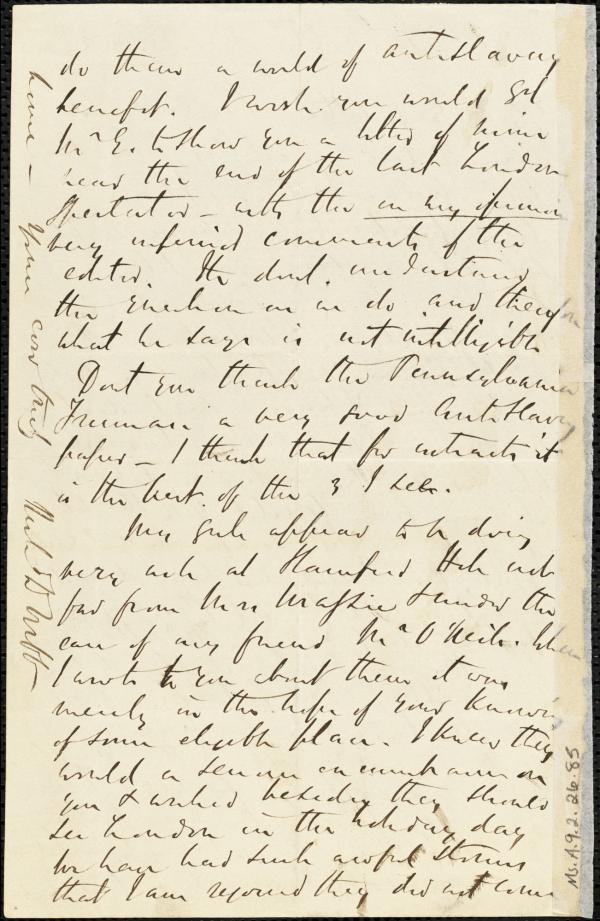 do them a world of antislavery
benefit. I wish you would get
Mr E. to show you a letter of mine
near the end of the last London
Spectator — with the in my opinion
very inferior comments of the
editor. He don't understand
the question as we do and therefore
what he says is not intelligible
Dont you think the Pennsylvania
Freeman a very good Antislavery
paper — I think that for extracts it
is the best of the 3 I see.
My girls appear to be doing
very well at Stamford Hill not
far from Mrs Massie & under the
care of my friend Mr O'Neill. When
I wrote to you about them it was
merely in the hope of your knowing
of some eligible place. I knew they
would be a serious encumbrance on
you & wished besides they should
see London in the holiday days
We have had such awful storms
that I am rejoiced they did not come
home — Yours very truly Richd D Webb
Ms.A.9.2.26.85